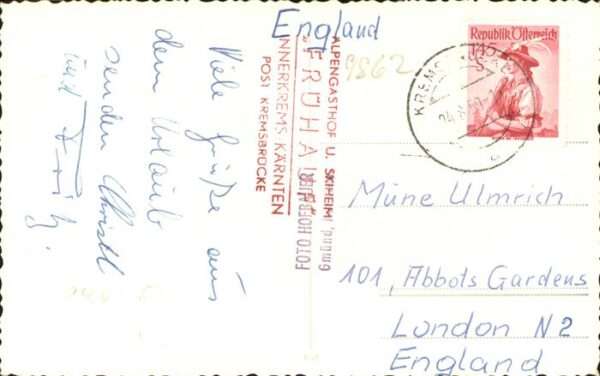 England
9862
Republik Österreich
1.45
S
KREMS
Viele Grüße aus
dem Urlaub
senden Christl
und Fritz.
ALPENGASTHOF U. SKIHEIM
FRÜHAUF
INNERKREMS KÄRNTEN
POST KREMSBRÜCKE
FOTO HOE
Gmünd,
Müne Ulmrich
101, Abbots Gardens
London N2
England